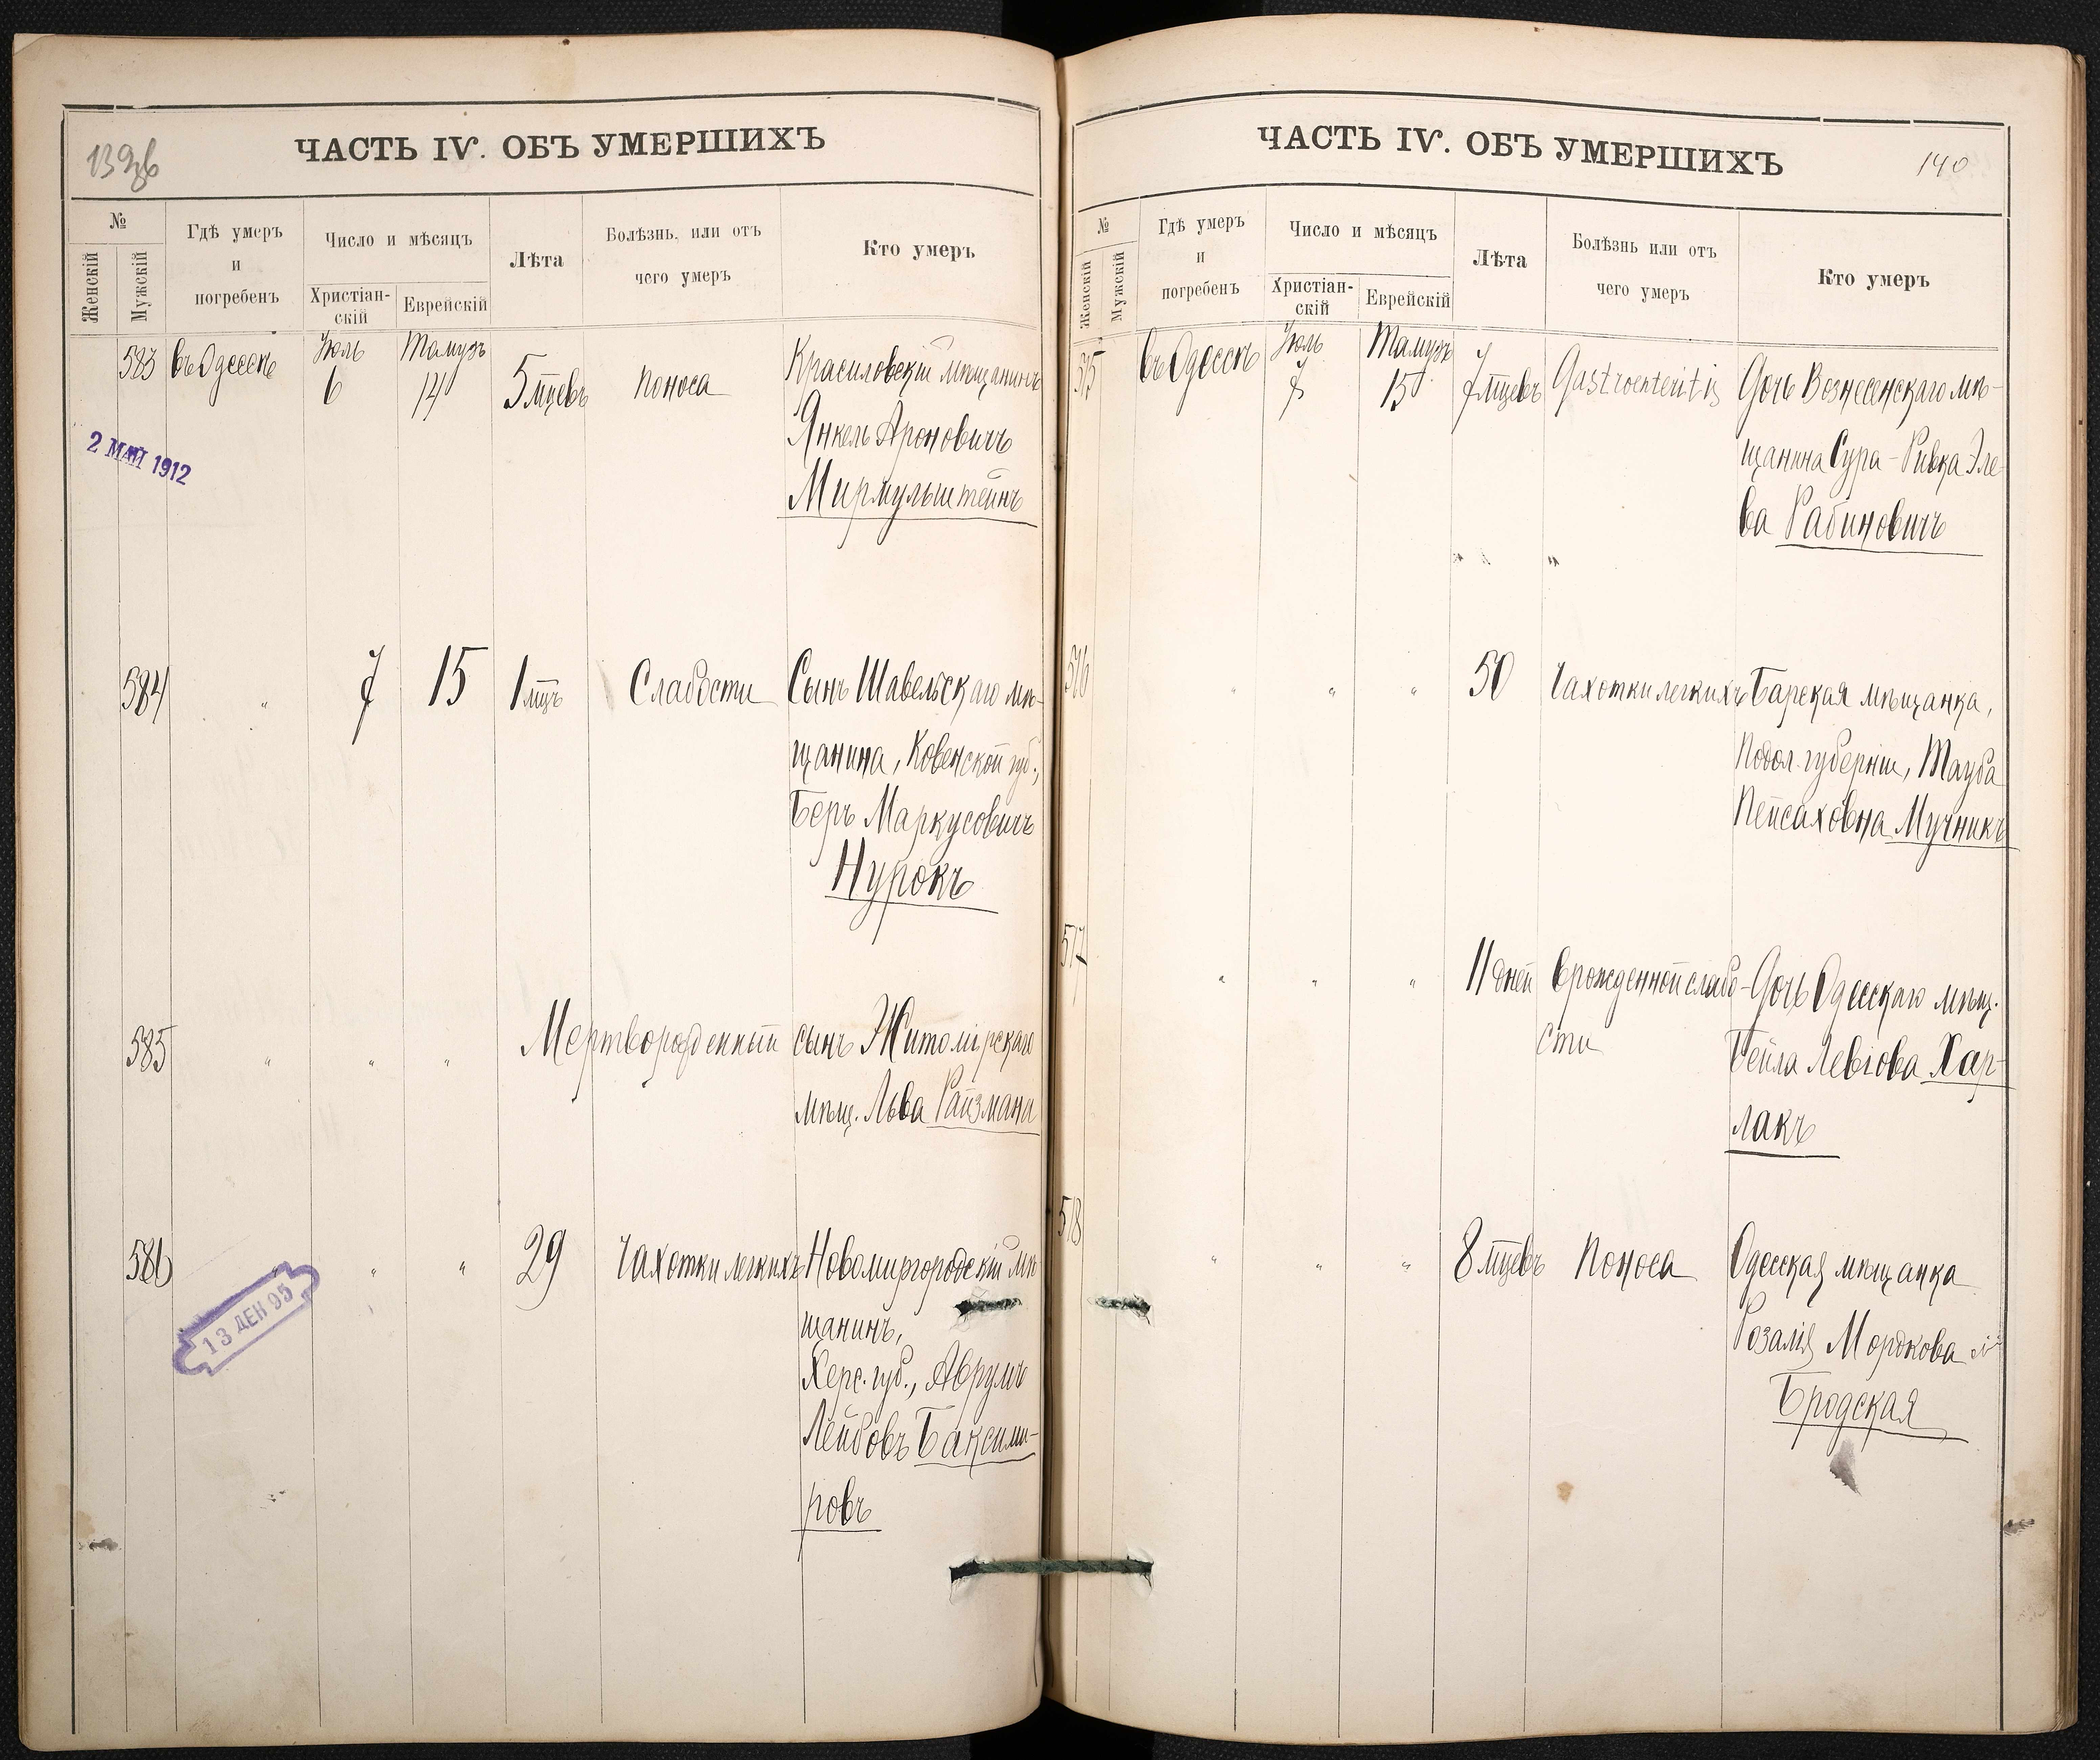 139об
ЧАСТЬ IV. ОБЪ УМЕРШИХЪ
№
Женскій
Мужскій
Гдѣ умеръ
и
погребенъ
Число и мѣсяцъ
Христіан-
скій
Еврейскій
Лѣта
Болѣзнь, или отъ
чего умеръ
Кто умеръ
583 въ Одессѣ Іюль 6 Тамузъ 14 5 мцевъ Поноса Красиловскій мѣщанинъ
Янкель Ароновичъ
Мирмульштейнъ
2 МАЙ 1912
584 " 7 15 1 мцъ Слабости Сынъ Шавельскаго мѣ-
щанина, Ковенской губ.,
Беръ Маркусовичъ
Нурокъ
585 " " " Мертворожденный сынъ Житомірскаго
мѣщ. Льва Райзмана
586 " " " 29 Чахотки легкихъ Новомиргородскій мѣ
щанинъ,
Херс. губ., Аврумъ
Лейбовъ Баксими-
ровъ
13 ДЕН 95
140
ЧАСТЬ IV. ОБЪ УМЕРШИХЪ
№
Женскій
Мужскій
Гдѣ умеръ
и
погребенъ
Число и мѣсяцъ
Христіан-
скій
Еврейскій
Лѣта
Болѣзнь или отъ
чего умеръ
Кто умеръ
515 въ Одессѣ Іюль 7 Тамузъ 15 7 мцевъ Gastroenteritis Дочь Вознесенскаго мѣ-
щанина Сура-Ривка Эле-
ва Рабиновичъ
516 " " " 50 Чахотки легкихъ Барская мѣщанка,
Подол. губерніи, Тауба
Пейсаховна Мучникъ
517 " " " 11 дней Врожденной слабо- Дочь Одесскаго мѣщ.
сти Бейла Левіова Хар-
лакъ
518 " " " 8 мцевъ Поноса Одесская мѣщанка
Розалія Мордкова
Бродская